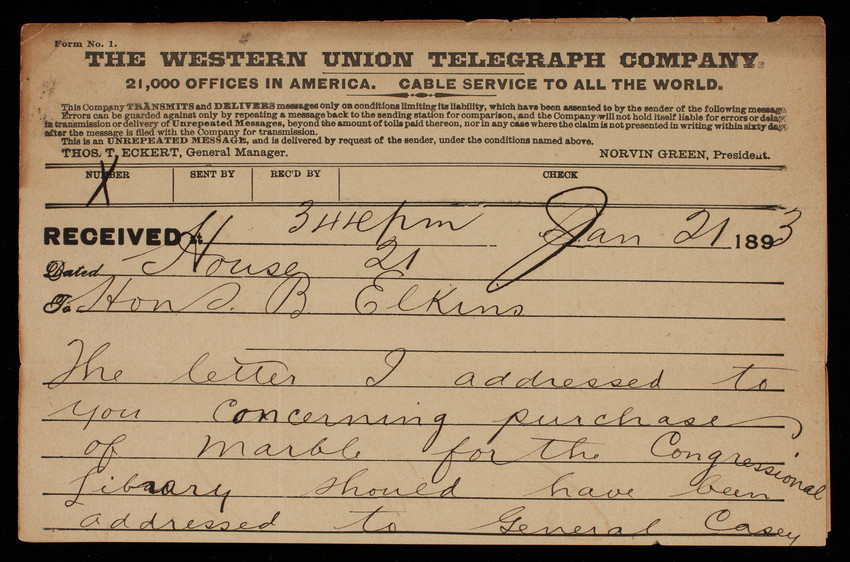 Form No. 1.
THE WESTERN UNION TELEGRAPH COMPANY.
21,000 OFFICES IN AMERICA. CABLE SERVICE TO ALL THE WORLD.
This Company TRANSMITS and DELIVERS messages only on conditions limiting its liability, which have been assented to by the sender of the following message.
Errors can be guarded against only by repeating a message back to the sending station for comparison, and the Company will not hold itself liable for errors or delays
in transmission or delivery of Unrepeated Messages, beyond the amount of tolls paid thereon, nor in any case where the claim is not presented in writing within sixty days
after the message is filed with the Company for transmission.
This is an UNREPEATED MESSAGE, and is delivered by request of the sender, under the conditions named above.
THOS. T. ECKERT, General Manager. NORVIN GREEN, President.
NUMBER SENT BY REC'D BY CHECK
X
RECEIVED at 344 pm Jan 21 1893
Dated House 21
To Hon S. B. Elkins
The letter I addressed to
you concerning purchase
of marble for the Congressional
Library should have been
addressed to General Casey